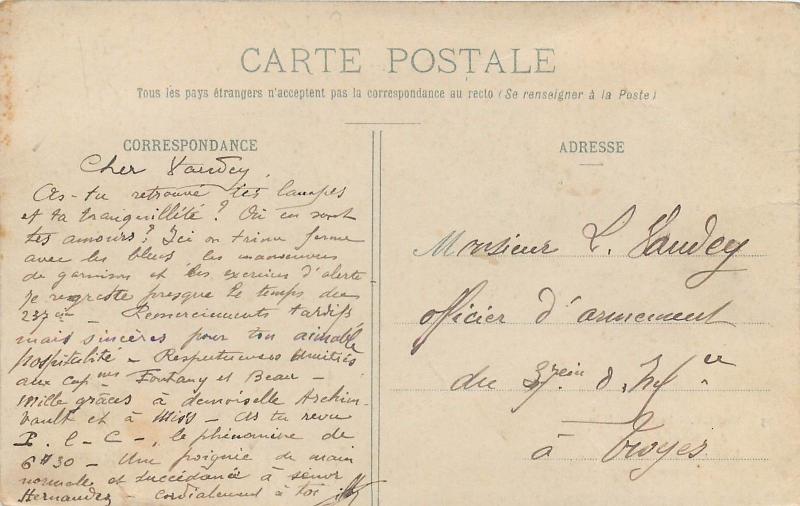 CARTE POSTALE
Tous les pays étrangers n'acceptent pas la correspondance au recto (Se renseigner à la Poste)
CORRESPONDANCE
Cher Vaudey,
As-tu retrouvé tes lampes
et ta tranquillité ? Où en sont
tes amours ? Ici on trime ferme
avec les bleus, les manœuvres
de garnison et les exercices d'alerte
je regrette presque le temps du
237e — Remerciements tardifs
mais sincères pour ton aimable
hospitalité — Respectueuses Amitiés
aux capnes Fontany et Beau —
Mille grâces à demoiselle Archim-
bault et à Miss — As tu revu
P. l - C -, le phénomène de
6#30 — Une poignée de main
normale et succédanée à senor
Hernandez — cordialement à toi
ADRESSE
Monsieur L. Vaudey
officier d'armement
du 37ein d. Inf.ie
à Troyes